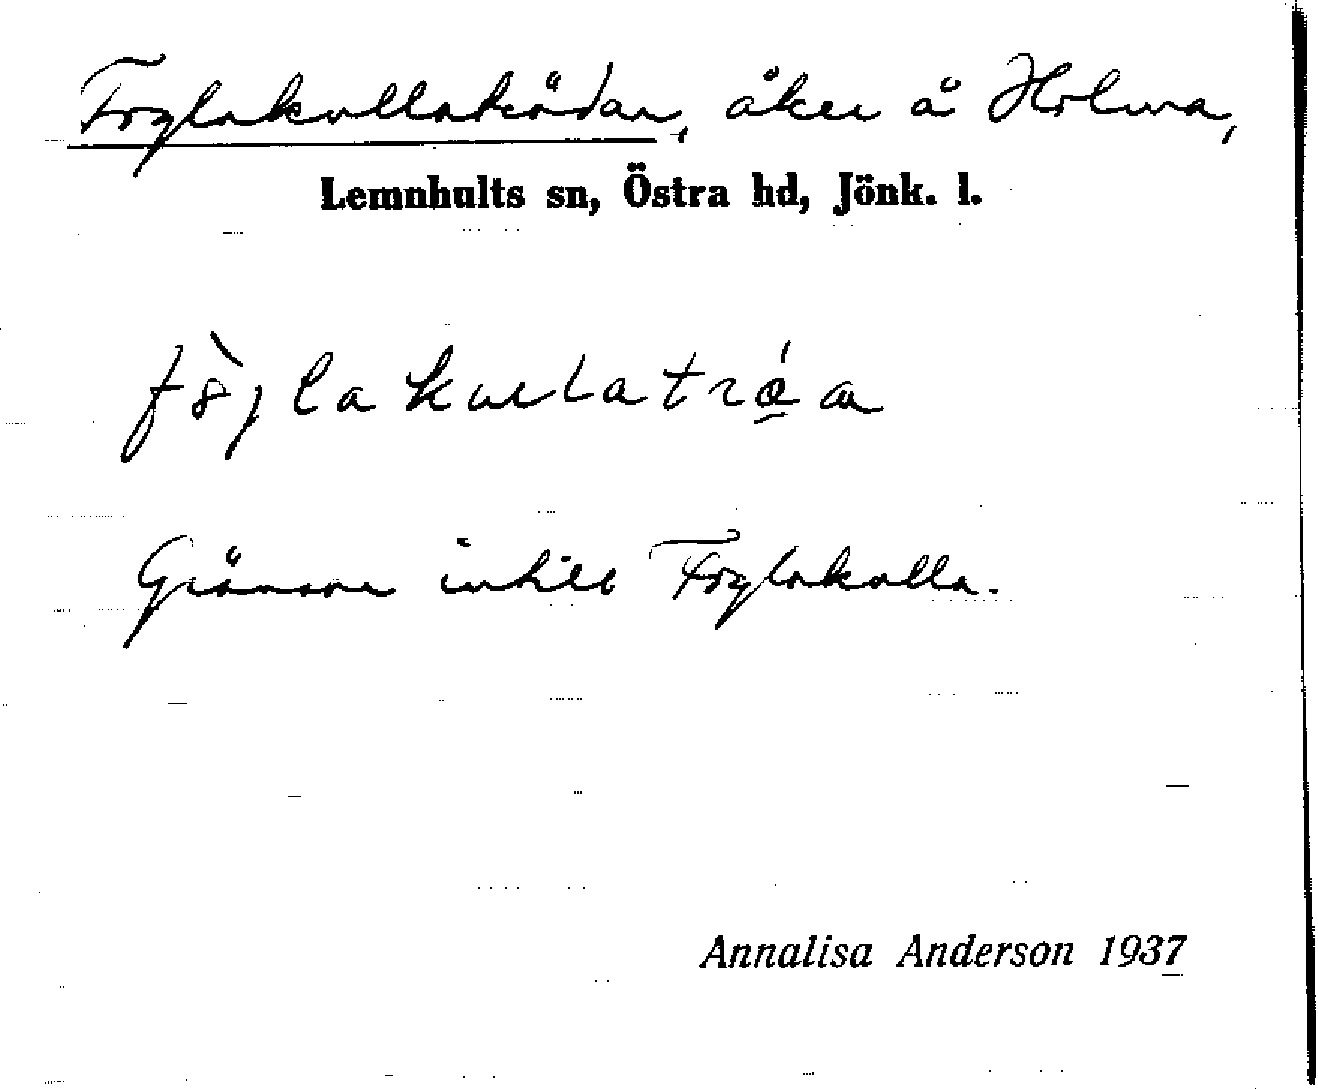 Foglakullaträdan, åker å Holma,
Lemnhults sn, Östra hd, Jönk. l.
Gränsar intill Foglakulla.
Annalisa Anderson 1937